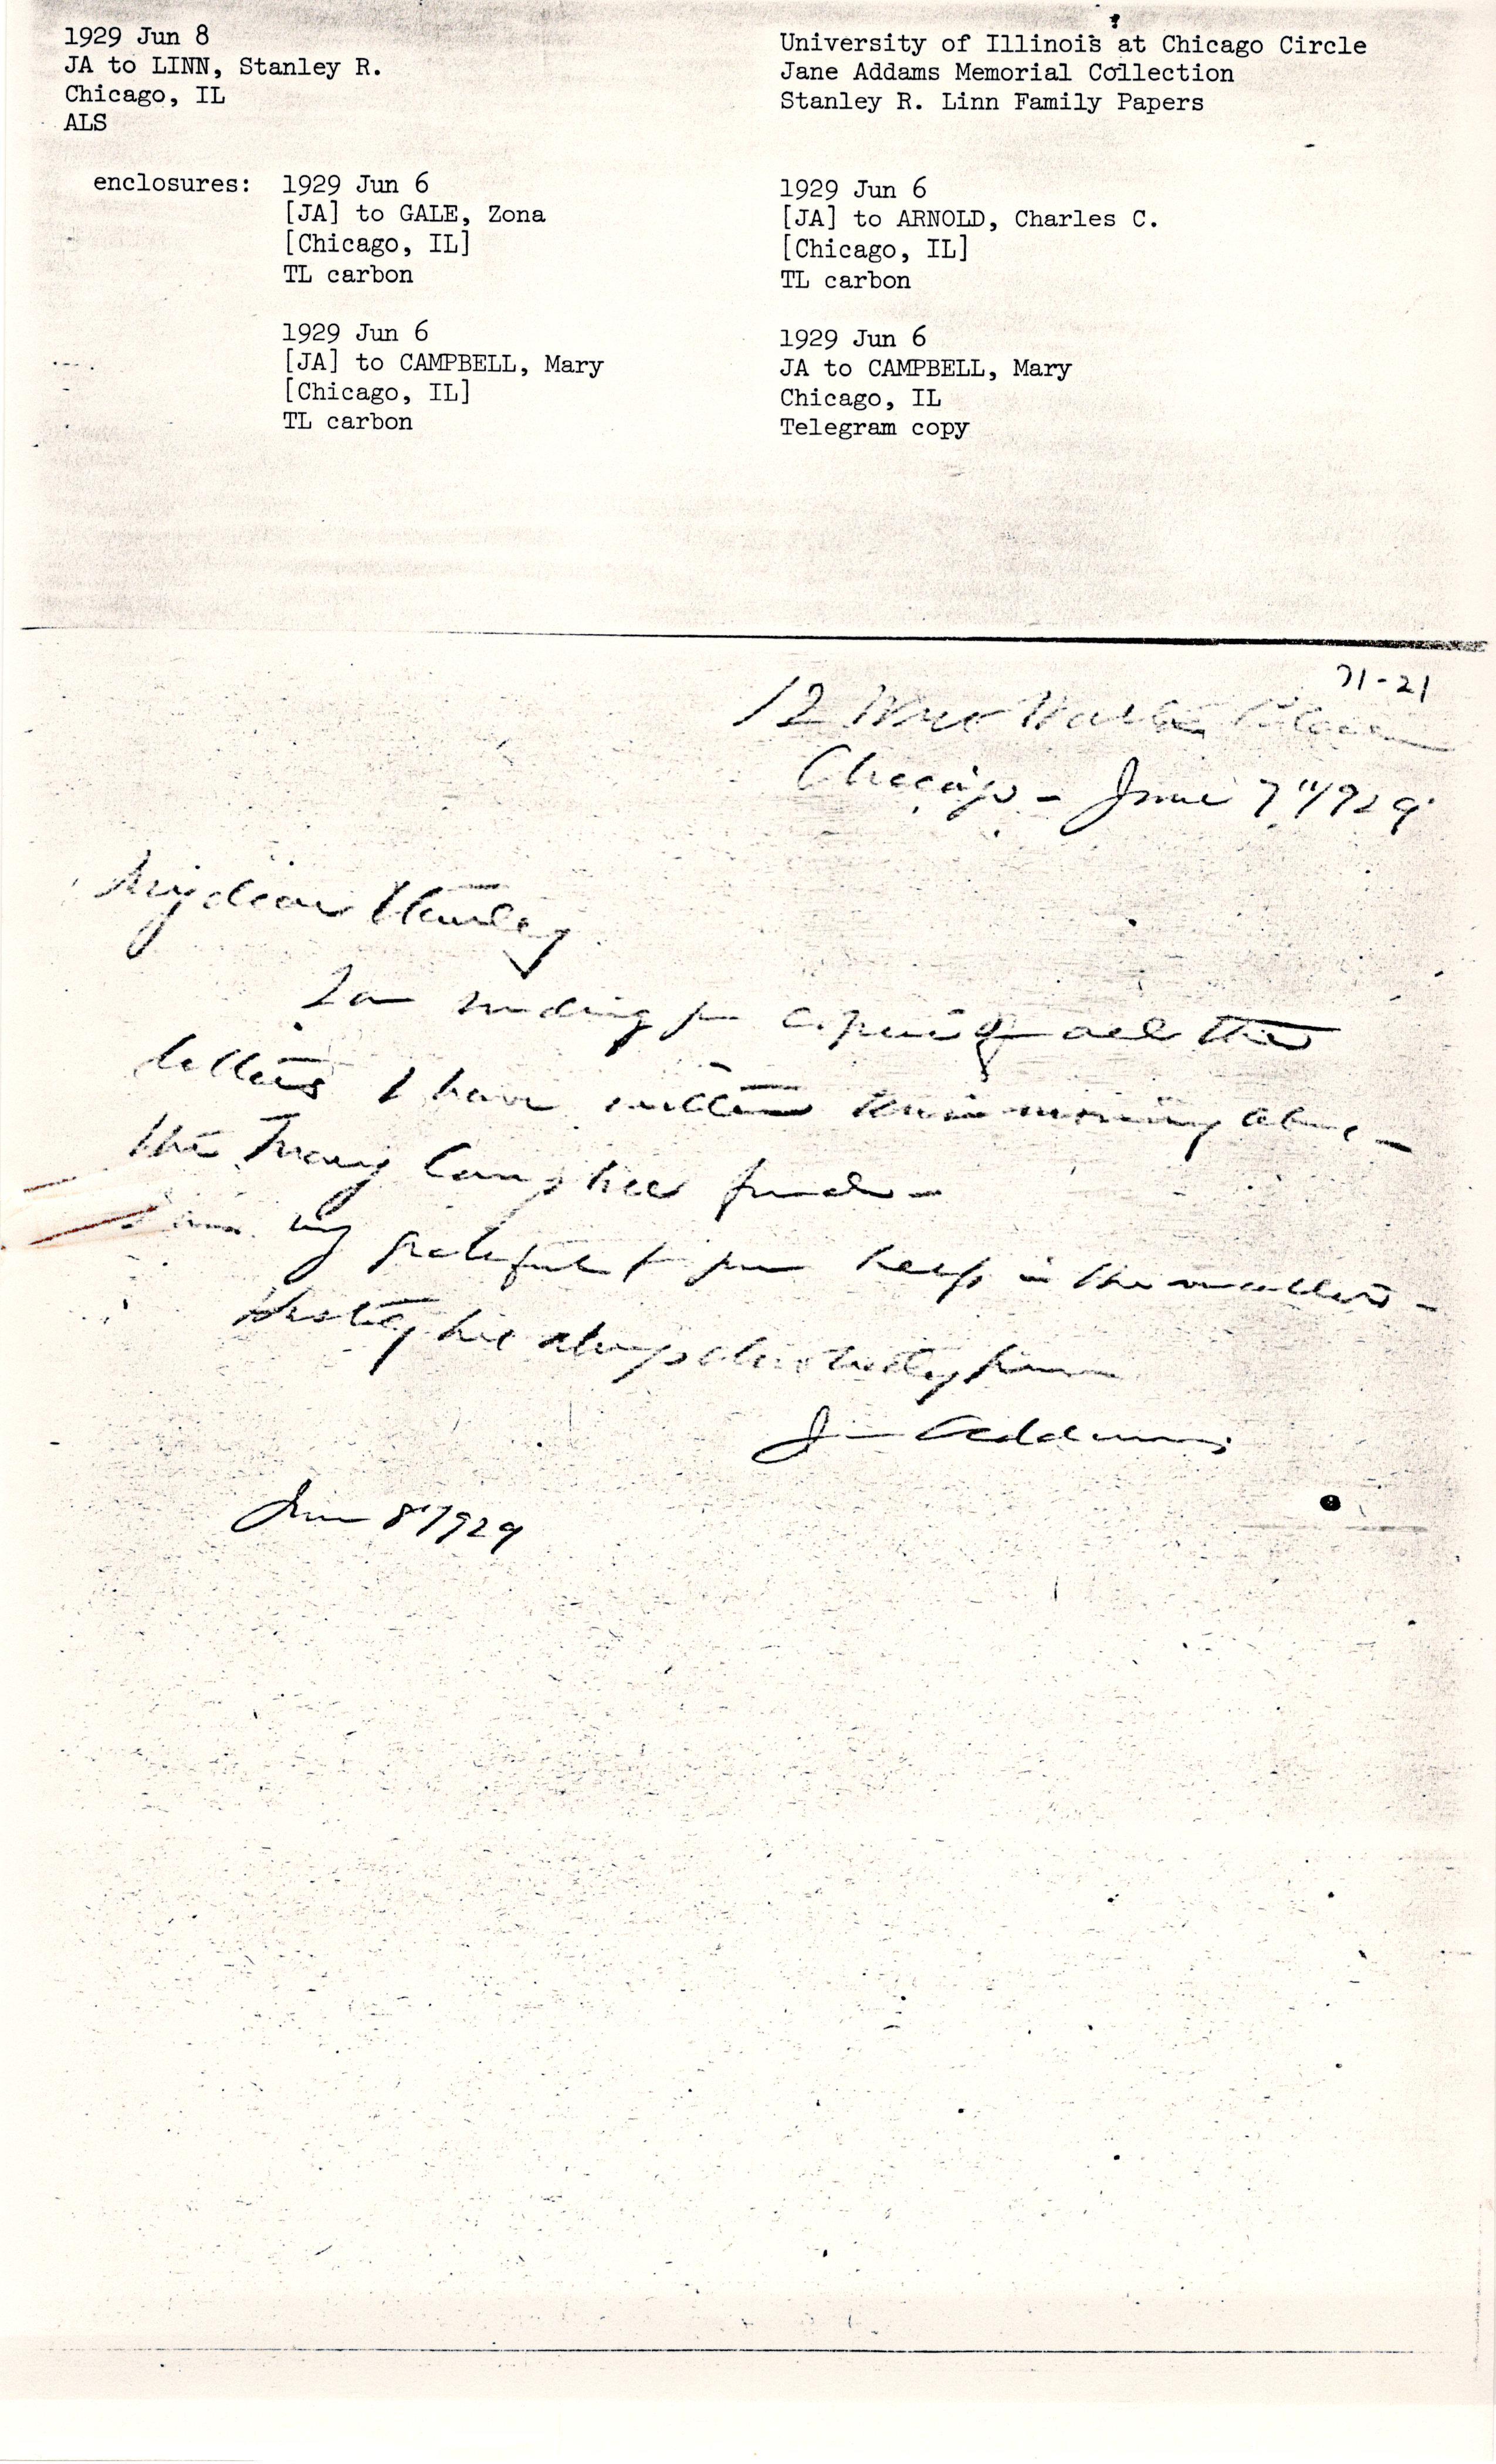 1929 Jun 8
JA to LINN, Stanley R.
Chicago, IL
ALS
University of Illinois at Chicago Circle
Jane Addams Memorial Collection
Stanley R. Linn Family Papers
enclosures: 1929 Jun 6
[JA] to GALE, Zona
[Chicago, IL]
TL carbon
1929 Jun 6
[JA] to ARNOLD, Charles C.
[Chicago, IL]
TL carbon
1929 Jun 6
[JA] to CAMPBELL, Mary
[Chicago, IL]
TL carbon
1929 Jun 6
JA to CAMPBELL, Mary
Chicago, IL
Telegram copy
71-21
12 West Walton Place
Chicago - June 7" 1929
My dear Stanley
I am sending you copies of all the
letters I have written this morning about
the Mary Campbell fund -
I am very grateful for your help in the matter -
always devotedly yours
Jane Addams
June 8" 1929